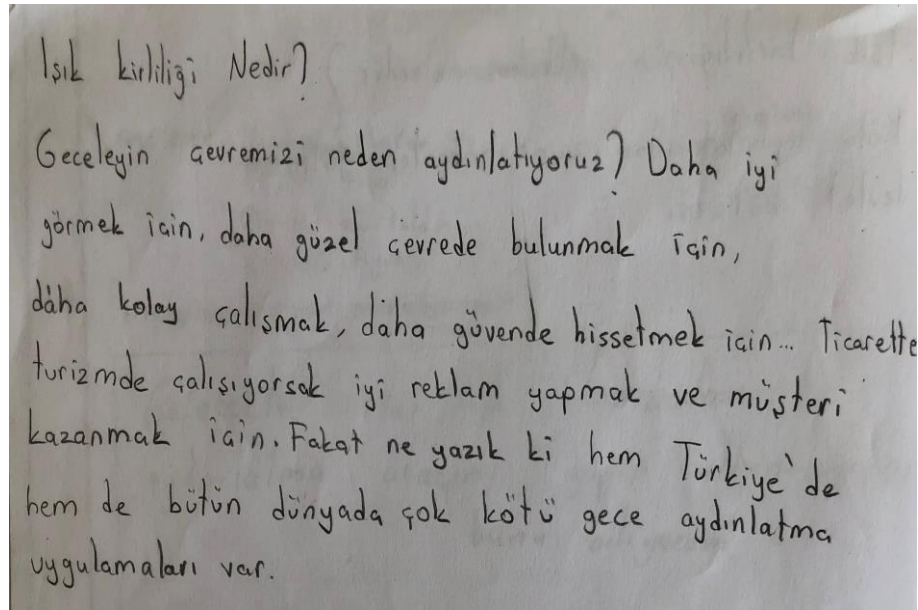 Işık kirliliği Nedir?
Geceleyin çevremizi neden aydınlatıyoruz? Daha iyi
görmek için, daha güzel çevrede bulunmak için,
daha kolay çalışmak, daha güvende hissetmek için... Ticarette
turizmde çalışıyorsak iyi reklam yapmak ve müşteri
kazanmak için. Fakat ne yazık ki hem Türkiye'de
hem de bütün dünyada çok kötü gece aydınlatma
uygulamaları var.